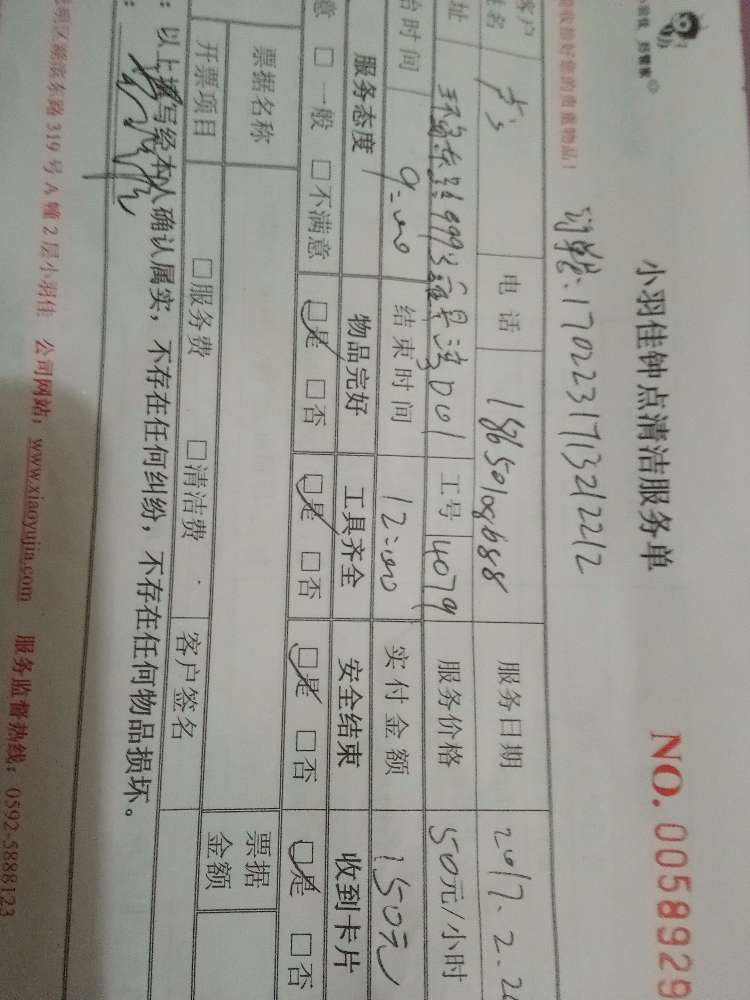 小羽佳钟点清洁服务单
NO. 0058929
收拾好您的贵重物品!
订单号:1702231713212212
客户
姓名
电 话 18650108688 服务日期 2017.2.2
址 999 001 工号 4079 服务价格 50元/小时
始时间 9:00 结束时间 12:00 实付金额 150元
服务态度 物品完好 工具齐全 安全结束 收到卡片
意 □ 一般 □ 不满意 □是 □否 □是 □否 □是 □否 □是 □否
票据名称 票据
金额
开票项目 □服务费 □清洁费 客户签名
:以上填写经本人确认属实,不存在任何纠纷,不存在任何物品损坏。
明区湖滨东路 319 号 A 幢 2 层小羽佳 公司网站:www.xiaoyujia.com 服务监督热线:0592-5888123